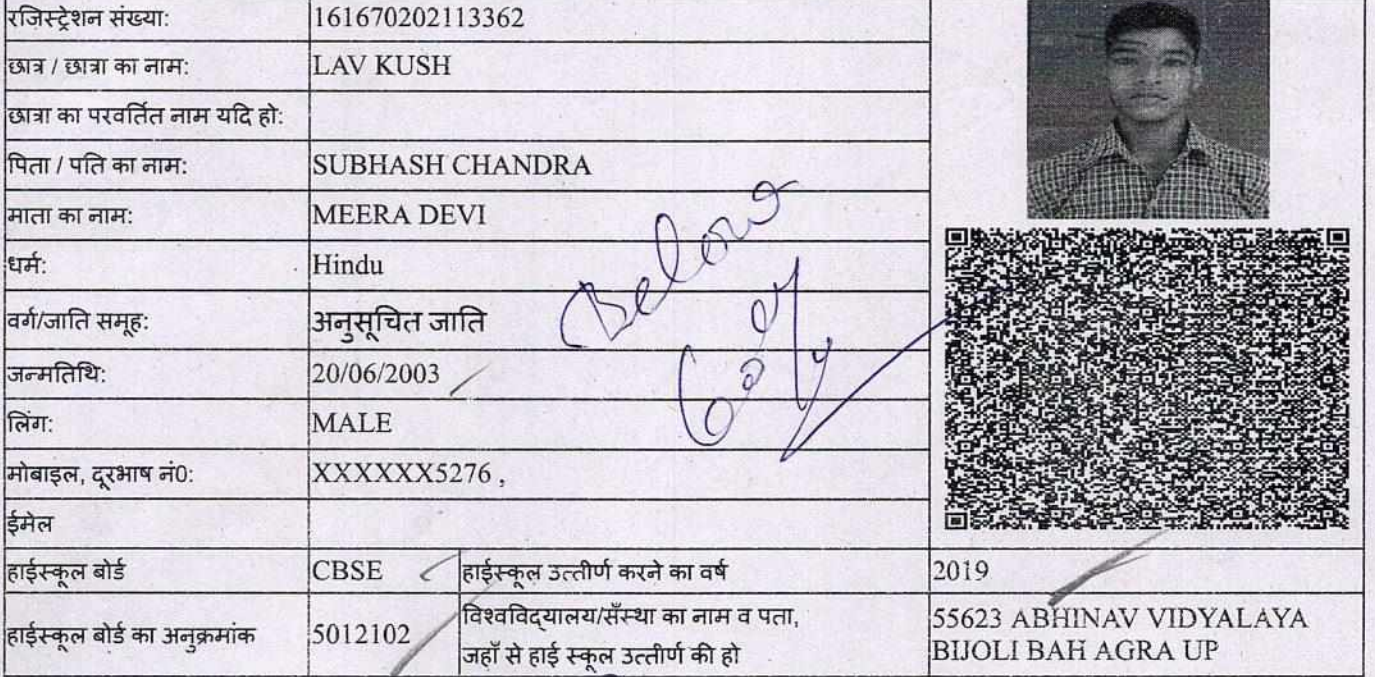 रजिस्ट्रेशन संख्या: 161670202113362
छात्र / छात्रा का नाम: LAV KUSH
छात्रा का परवर्तित नाम यदि हो:
पिता / पति का नाम: SUBHASH CHANDRA
माता का नाम: MEERA DEVI
धर्म: Hindu
वर्ग/जाति समूह: अनुसूचित जाति
जन्मतिथि: 20/06/2003
लिंग: MALE
मोबाइल, दूरभाष नं0: XXXXXX5276 ,
ईमेल
हाईस्कूल बोर्ड CBSE हाईस्कूल उत्तीर्ण करने का वर्ष 2019
हाईस्कूल बोर्ड का अनुक्रमांक 5012102 विश्वविद्यालय/सँस्था का नाम व पता, 55623 ABHINAV VIDYALAYA
जहाँ से हाई स्कूल उत्तीर्ण की हो BIJOLI BAH AGRA UP